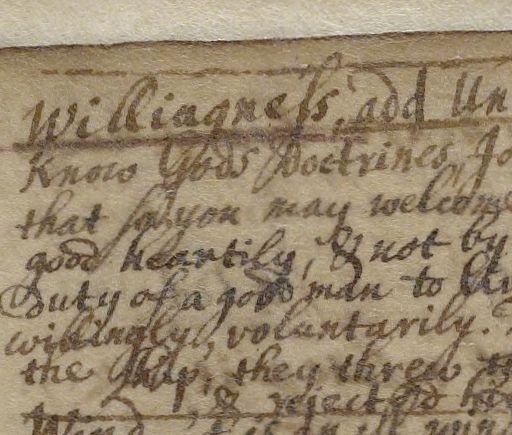 Willingness, add Un
Know Gods Doctrines, Jo
that so you may welcome
good heartily, & not by
Duty of a good man to
willingly, voluntarily.
the ship, they threw
& rejected
Wind